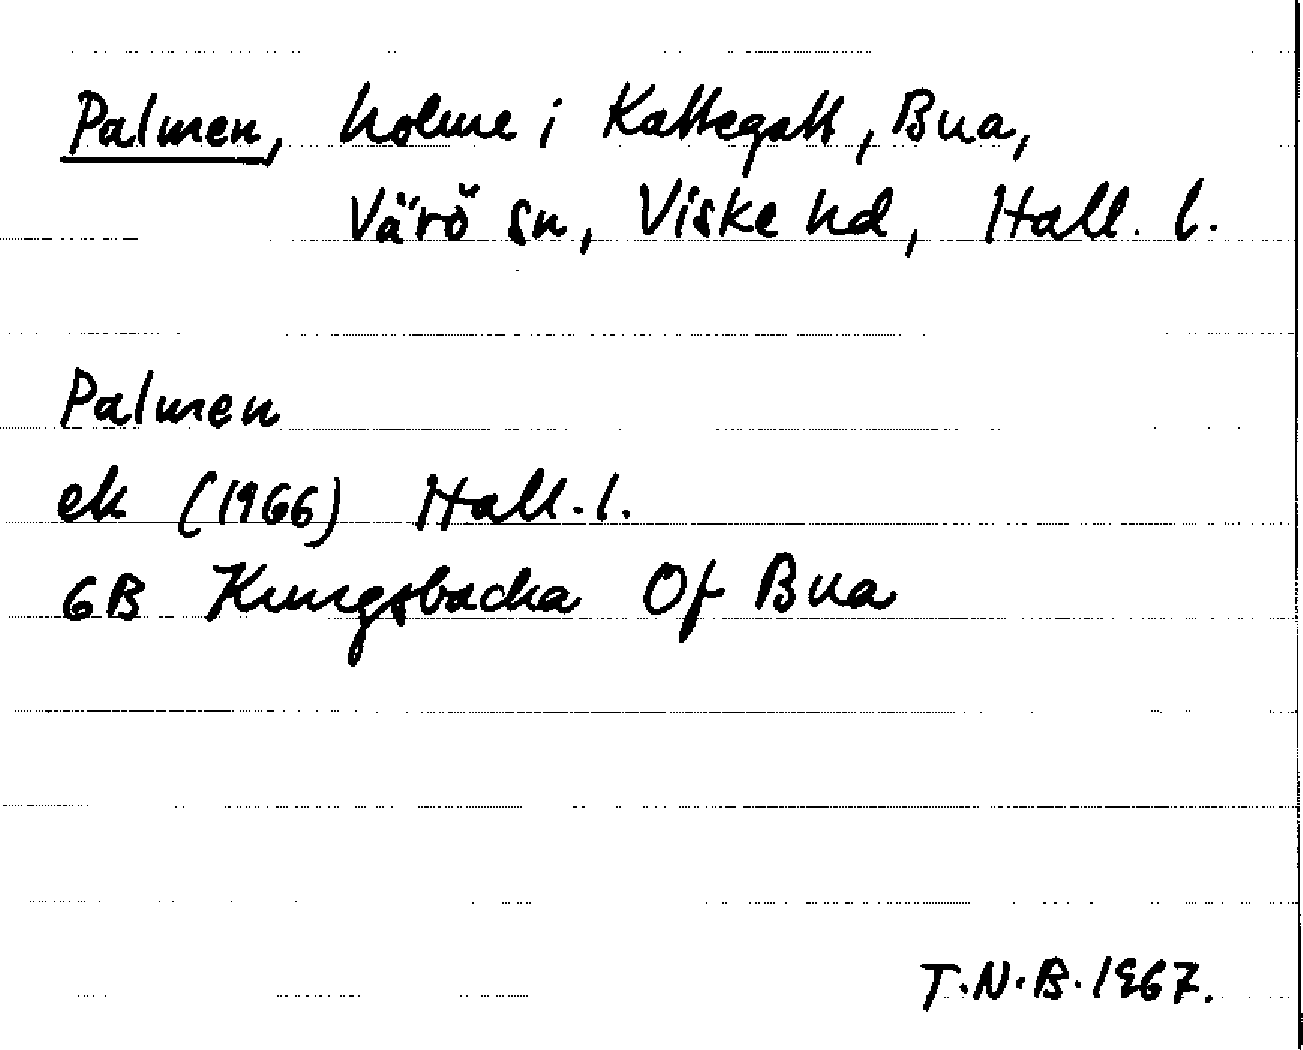 Palmen, holme i Kattegatt, Bua,
Värö sn, Viske hd, Hall. l.
Palmen
ek (1966) Hall. l.
6B Kungsbacka 0f Bua
T.N.B. 1967.